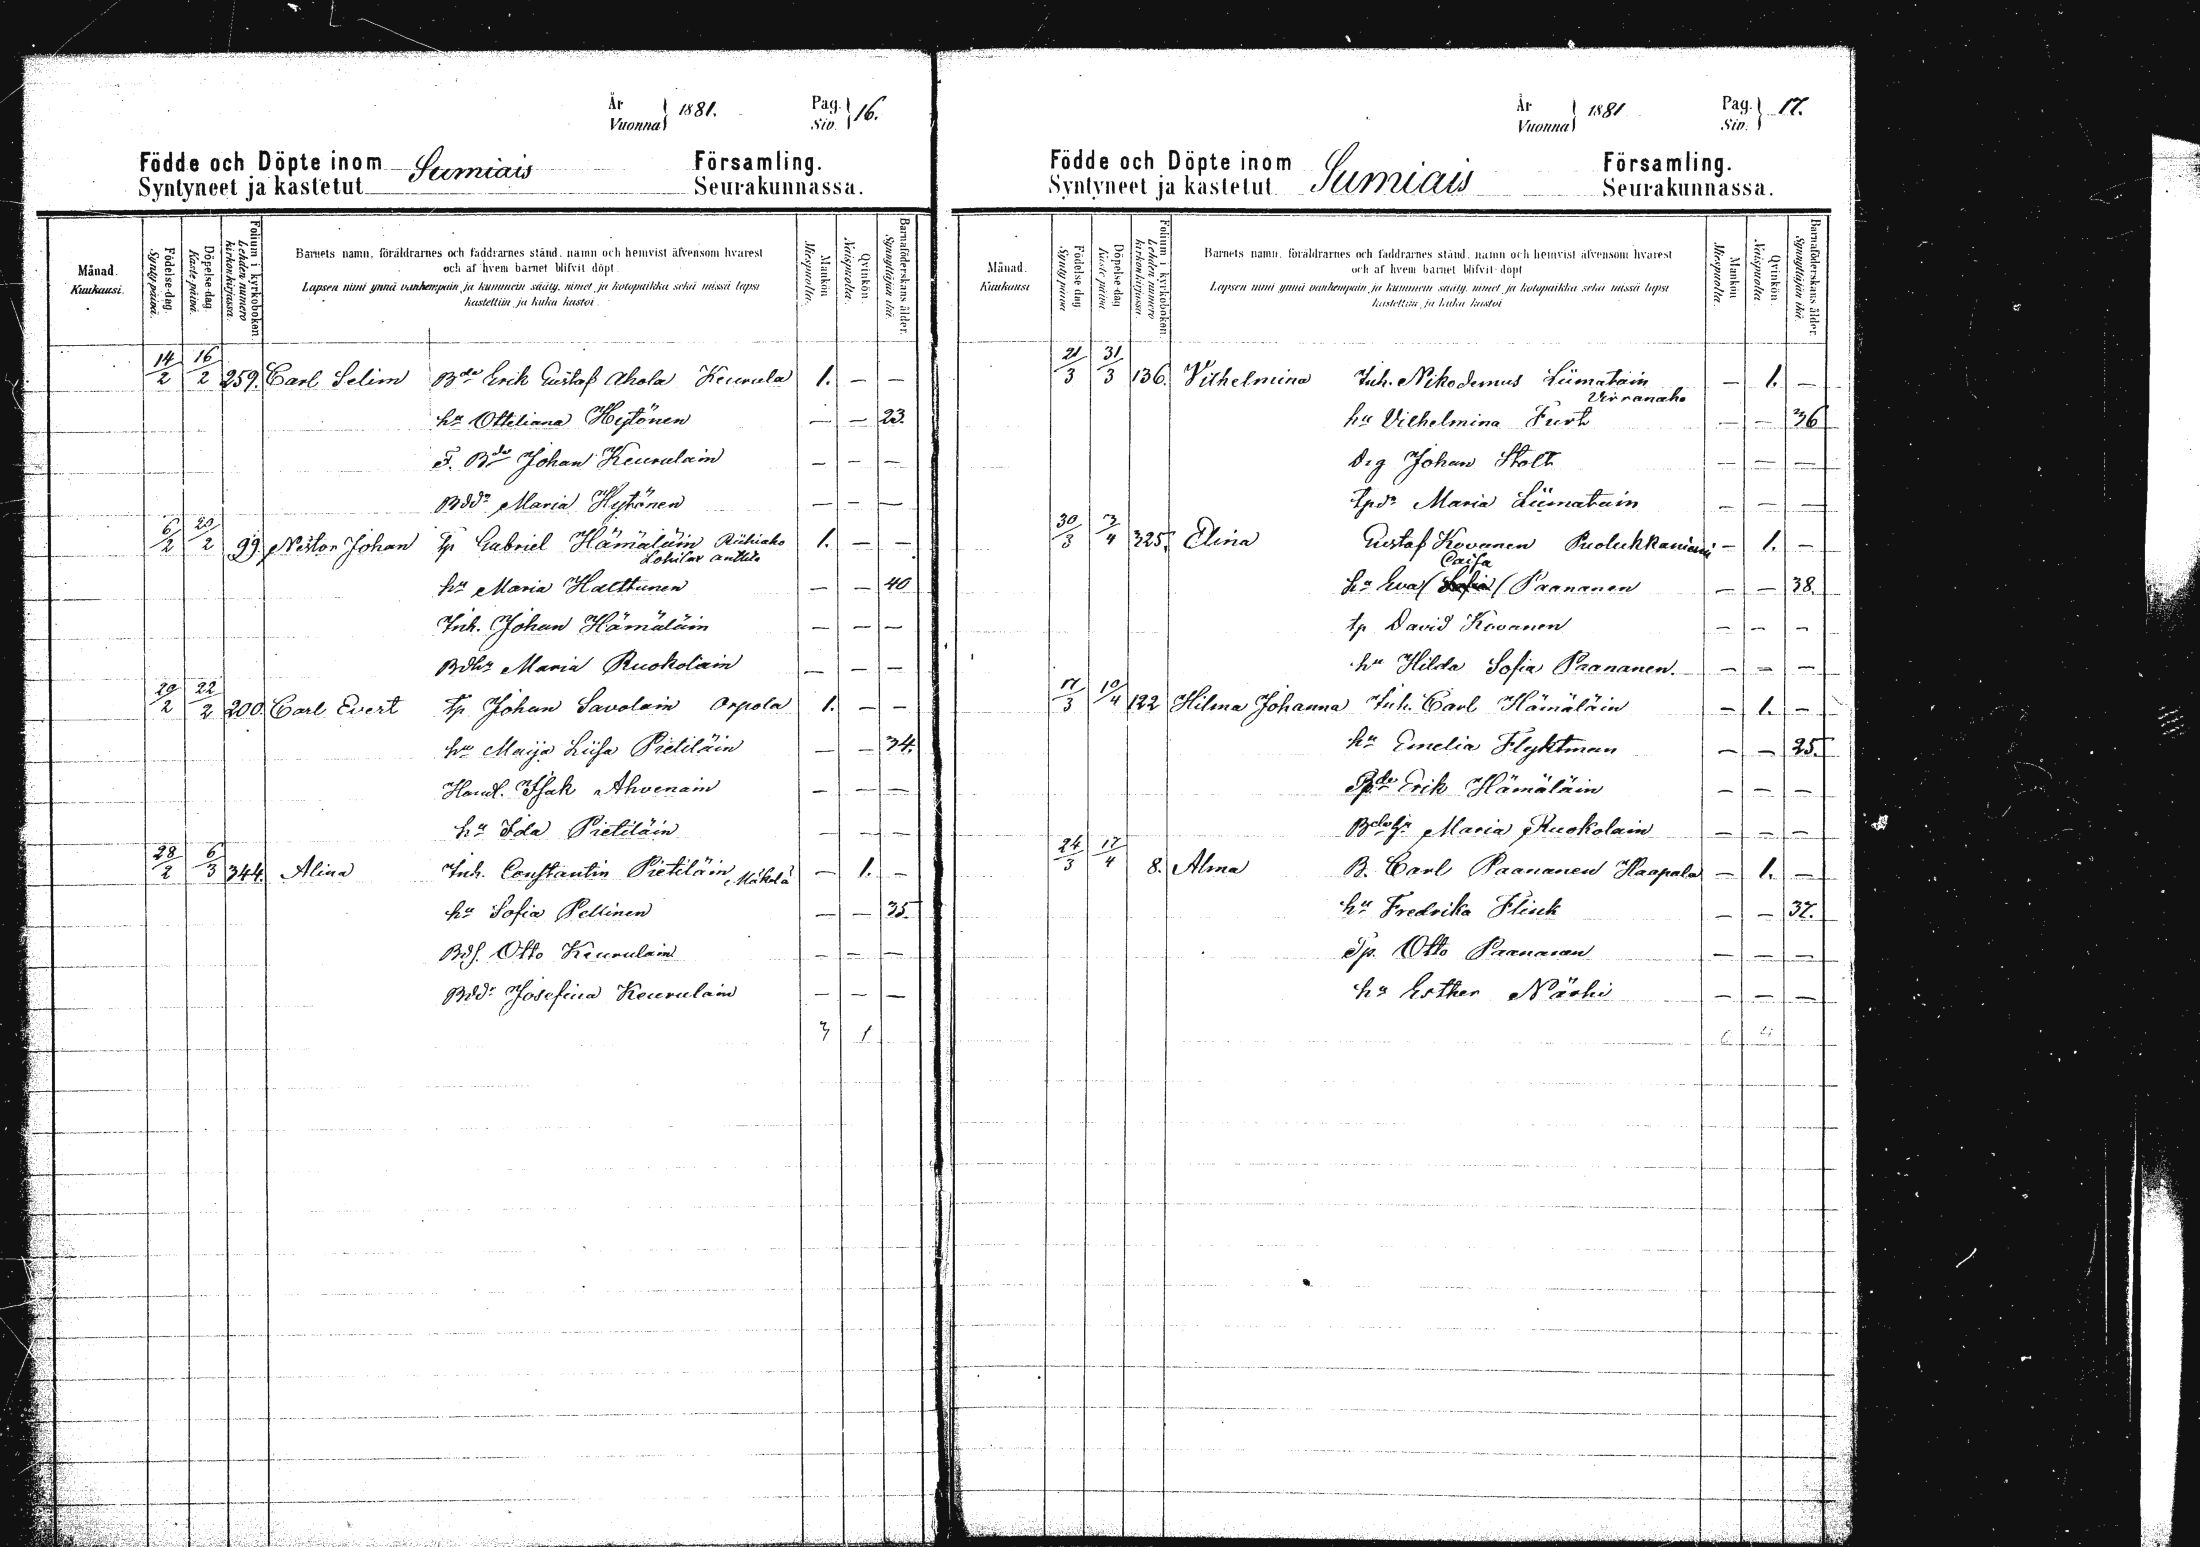 År
Vuonna 1881. Pag. Siv. 16.
Födde och Döpte inom Sumiais Församling.
Syntyneet ja kastetut Seurakunnassa.
Månad. Kuukausi.
Födelse-dag. Syntypäivä.
Döpelse-dag. Kastepäivä.
Folium i kyrkoboken Lehden numero kirkonkirjassa.
Barnets namn, föräldrarnes och faddrarnes stånd, namn och hemvist äfvensom hvarest
och af hvem barnet blifvit döpt.
Lapsen nimi ynnä vanhempain ja kummein sääty, nimet ja kotopaikka sekä missä lapsi
kastettiin ja kuka kastoi.
Mankön Miespuolia.
Qvinkön. Naispuolia.
Barnaföderskans ålder. Synnyttäjän ikä.
14/2 16/2 259. Carl Selim Bde Erik Gustaf Ahola Keurula 1. — —
hu Otteliana Hytönen — — 23.
F. Bde Johan Keurulain — — —
Bddr Maria Hytönen — — —
6/2 20/2 99 Nestor Johan Tp Gabriel Hämäläin Riihiaho 1. — —
hu Maria Halttunen — — 40
Inh. Johan Hämäläin — — —
Bdhu Maria Ruokolain — — —
20/2 22/2 200. Carl Evert Tp Johan Savolain Orpola 1. — —
hu Maija Liisa Pietiläin — — 34.
Handl. Isak Ahvenain — — —
hu Ida Pietiläin — — —
28/2 6/3 344. Alina Inh. Constantin Pietiläin Mäkelä — 1. —
hu Sofia Pellinen — — 35
Bds. Otto Keurulain — — —
Bddr Josefina Keurulain — — —
3 1
År
Vuonna 1881 Pag. Siv. 17.
Födde och Döpte inom Sumiais Församling.
Syntyneet ja kastetut Seurakunnassa.
Månad. Kuukausi
Födelse dag Syntypäivä
Döpelse-dag Kastepäivä
Folium i kyrkoboken. Lehden numero kirkonkirjassa.
Barnets namn, föräldrarnes och faddrarnes stånd, namn och hemvist äfvensom hvarest
och af hvem barnet blifvit döpt
Lapsen nimi ynnä vanhempain ja kummein sääty, nimet ja kotopaikka sekä missä lapsi
kastettiin ja kuka kastoi
Mankön Miespuolia.
Qvinkön. Naispuolia.
Barnaföderskans ålder. Synnyttäjän ikä.
21/3 31/3 136. Vilhelmina Inh. Nikodemus Liimatain — 1. —
Virranaho
hu Vilhelmina Furt — — 36
Drg Johan Stolt — — —
tpdr Maria Liimatain — — —
30/3 3/4 325. Elina Gustaf Kovanen Puolukkaniemi — 1. —
Caisa
hu Eva (Sofia) Paananen — — 38.
tp David Kovanen — — —
hu Hilda Sofia Paananen. — — —
17/3 10/4 122 Hilma Johanna Inh. Carl Hämäläin — 1. —
hu Emelia Flyktman — — 25.
Bde Erik Hämäläin — — —
Bdehu Maria Ruokolain — — —
24/3 17/4 8. Alma B. Carl Paananen Haapala — 1. —
hu Fredrika Flink — — 37.
Tp. Otto Paananen — — —
hu Esther Närhi — — —